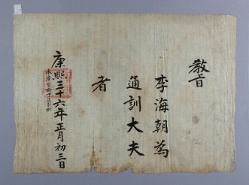 教旨
李海朝為
通訓大夫
者
康熙三十六年正月初三日